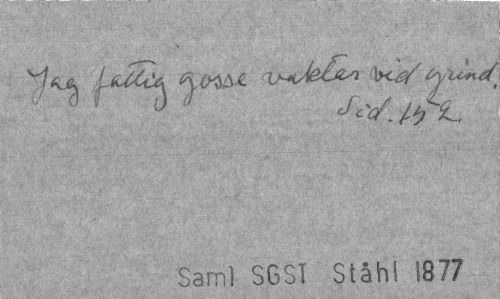 Jag fattig gosse vaktar vid grind.
Sid. 152.
Saml SGST Ståhl 1877